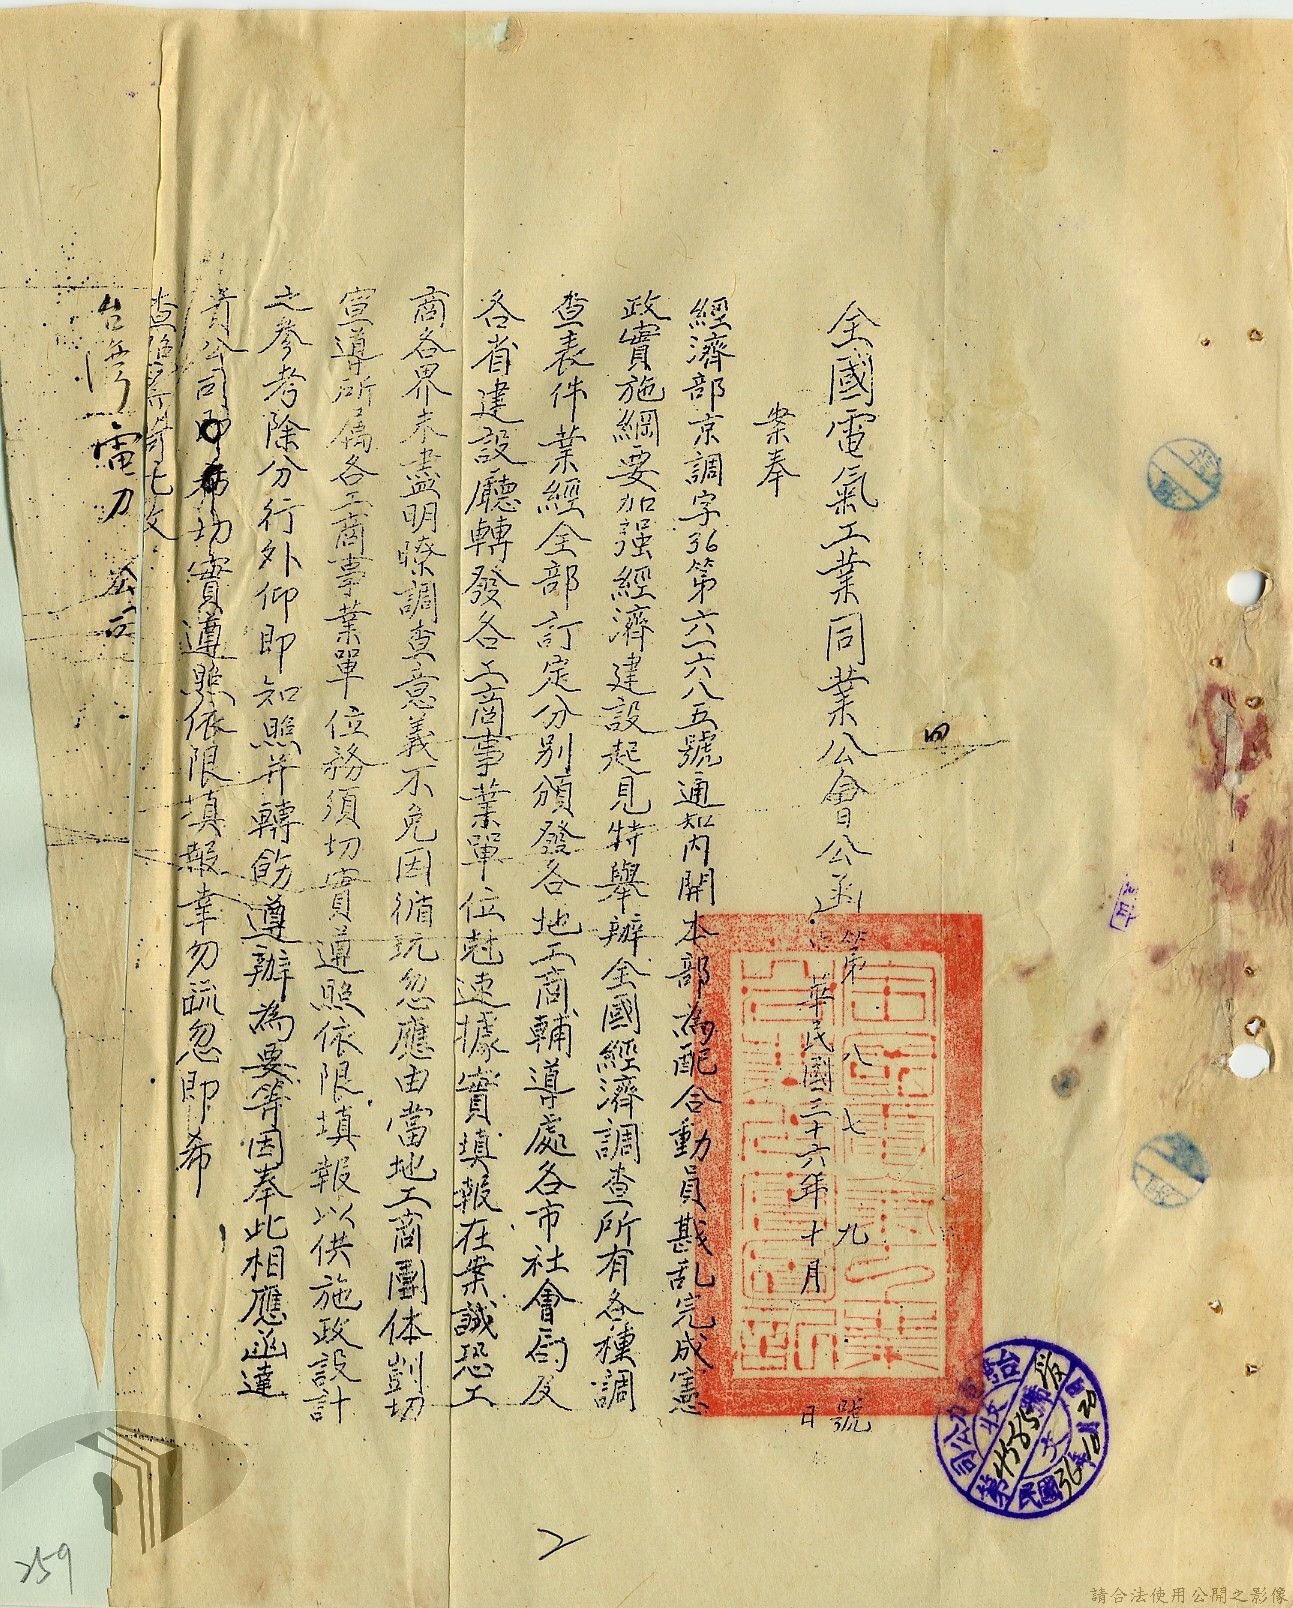 全國電氣工業同業公會公函
第八七九號
中華民國三十六年十月 日
案奉
經濟部京調字36第六六八五號通知內開本部為配合動員戡亂完成憲
政實施綱要加強經濟建設起見特舉辦全國經濟調查所有各種調
查表件業經全部訂定分別頒發各地工商輔導處各市社會局及
各省建設廳轉發各工商事業單位尅速據實填報在案誠恐工
商各界未盡明瞭調查意義不免因循玩忽應由當地工商團体剴切
宣導所屬各工商事業單位務須切實遵照依限填報以供施政設計
之參考除分行外仰即知照并轉飭遵辦為要等因奉此相應函達
貴公司即希切實遵照依限填報幸勿疏忽即希
查
台灣電力公司
台灣電力公司
收文
第4585號
民國36年10月20日
2
259
請合法使用公開之影像